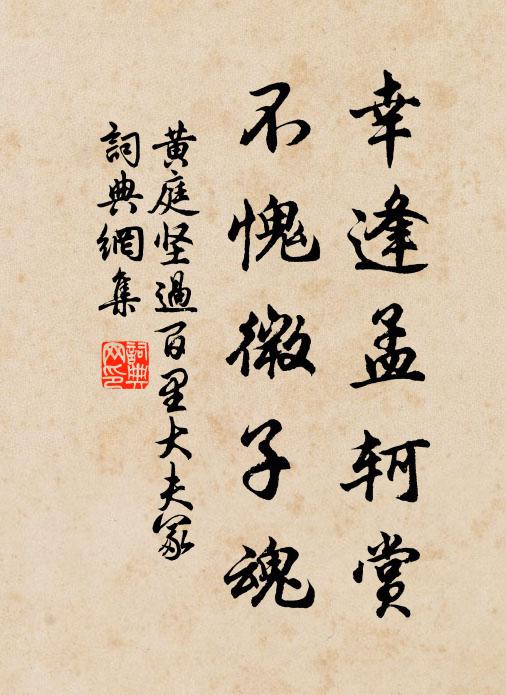 幸逢孟轲赏
不愧微子魂
黄庭坚過百里大夫冢
詞典網集
詞典网印